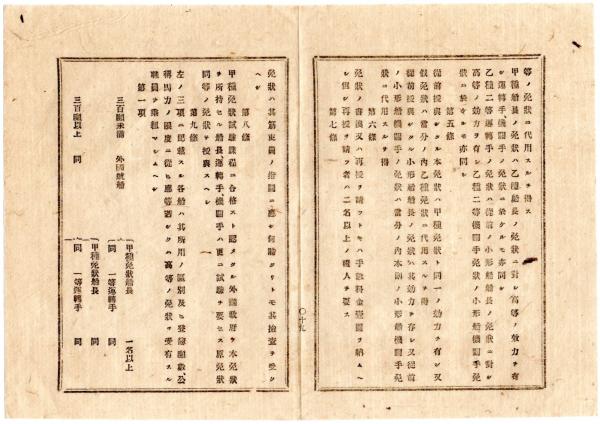 等ノ免狀ニ代用スルヲ得ス
甲種船長ノ免狀ハ乙種船長ノ免狀ニ對シ高等ノ效力ヲ有
シ運轉手機關手ノ免狀ニ於ケルモ亦同シ
乙種二等運轉手ノ免狀ハ從前ノ小形船船長ノ免狀ニ對シ
高等ノ効力ヲ有シ乙種二等機關手免狀ノ小形船機關手免
狀ニ於ケルモ亦同シ
第五條
從前授與シタル本免狀ハ甲種免狀ト同一ノ効力ヲ有シ又
假免狀ハ當分ノ內乙種免狀ニ代用スルヲ得
從前授與シタル小形船船長ノ免狀ハ其効力ヲ存シ又從前
ノ小形船機關手ノ免狀ハ當分ノ內本則ノ小形船機關手免
狀ニ代用スルヲ得
第六條
免狀ノ書換又ハ再授ヲ請フトキハ手數料金壹圓ヲ納ムヘ
シ但シ再授ヲ請フ者ハ二名以上ノ證人ヲ要ス
第七條
〇十九
免狀ハ其筋吏員ノ指圖ニ應シ何時タリトモ其檢查ヲ受ク
ヘシ
第八條
甲種免狀試驗課程ニ合格スト認メタル外國政府ノ本免狀
ヲ所持セル船長運轉手、機關手ハ更ニ試驗ヲ要セス原免狀
同等ノ免狀ヲ授與スヘシ
第九條
左ノ三項ニ記載スル各船ハ其所用ノ區別及ヒ登簿噸數、公
稱馬力ノ限度ニ從ヒ應等若シクハ高等ノ免狀ヲ受有スル
職員ヲ乘組マシムヘシ
第一項
三百噸未滿 外國航船 甲種免狀船長 一名以上
同 一等運轉手 同
三百噸以上 同 甲種免狀船長 同
同 一等運轉手 同